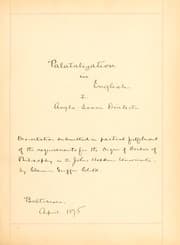 Palatalization
in
English.
I.
Anglo-Saxon Dialects
Dissertation submitted in partial fulfilment
of the requirements for the degree of Doctor of
Philosophy in the Johns Hopkins University
by
Baltimore.
April 1895